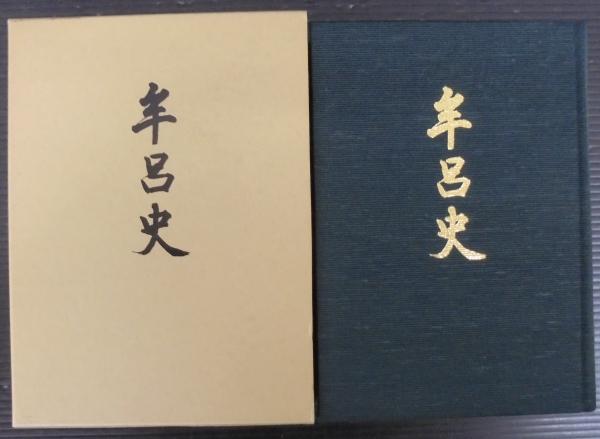 牟呂史
牟呂史